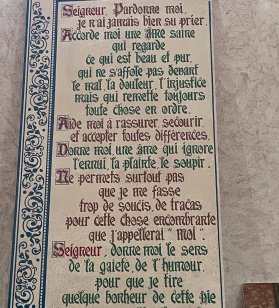 Seigneur, Pardonne moi,
je n'ai jamais bien su prier.
Accorde moi une âme saine
qui regarde
ce qui est beau et pur,
qui ne s'affole pas devant
le mal, la douleur, l'injustice
mais qui remette toujours
toute chose en ordre.
Aide moi à rassurer, secourir
et accepter toutes différences.
Donne moi une âme qui ignore
l'ennui, la plainte, le soupir.
Ne permets surtout pas
que je me fasse
trop de soucis, de tracas
pour cette chose encombrante
que j'appellerai "moi".
Seigneur, donne moi le sens
de la gaieté, de l'humour,
pour que je tire
quelque bonheur de cette vie